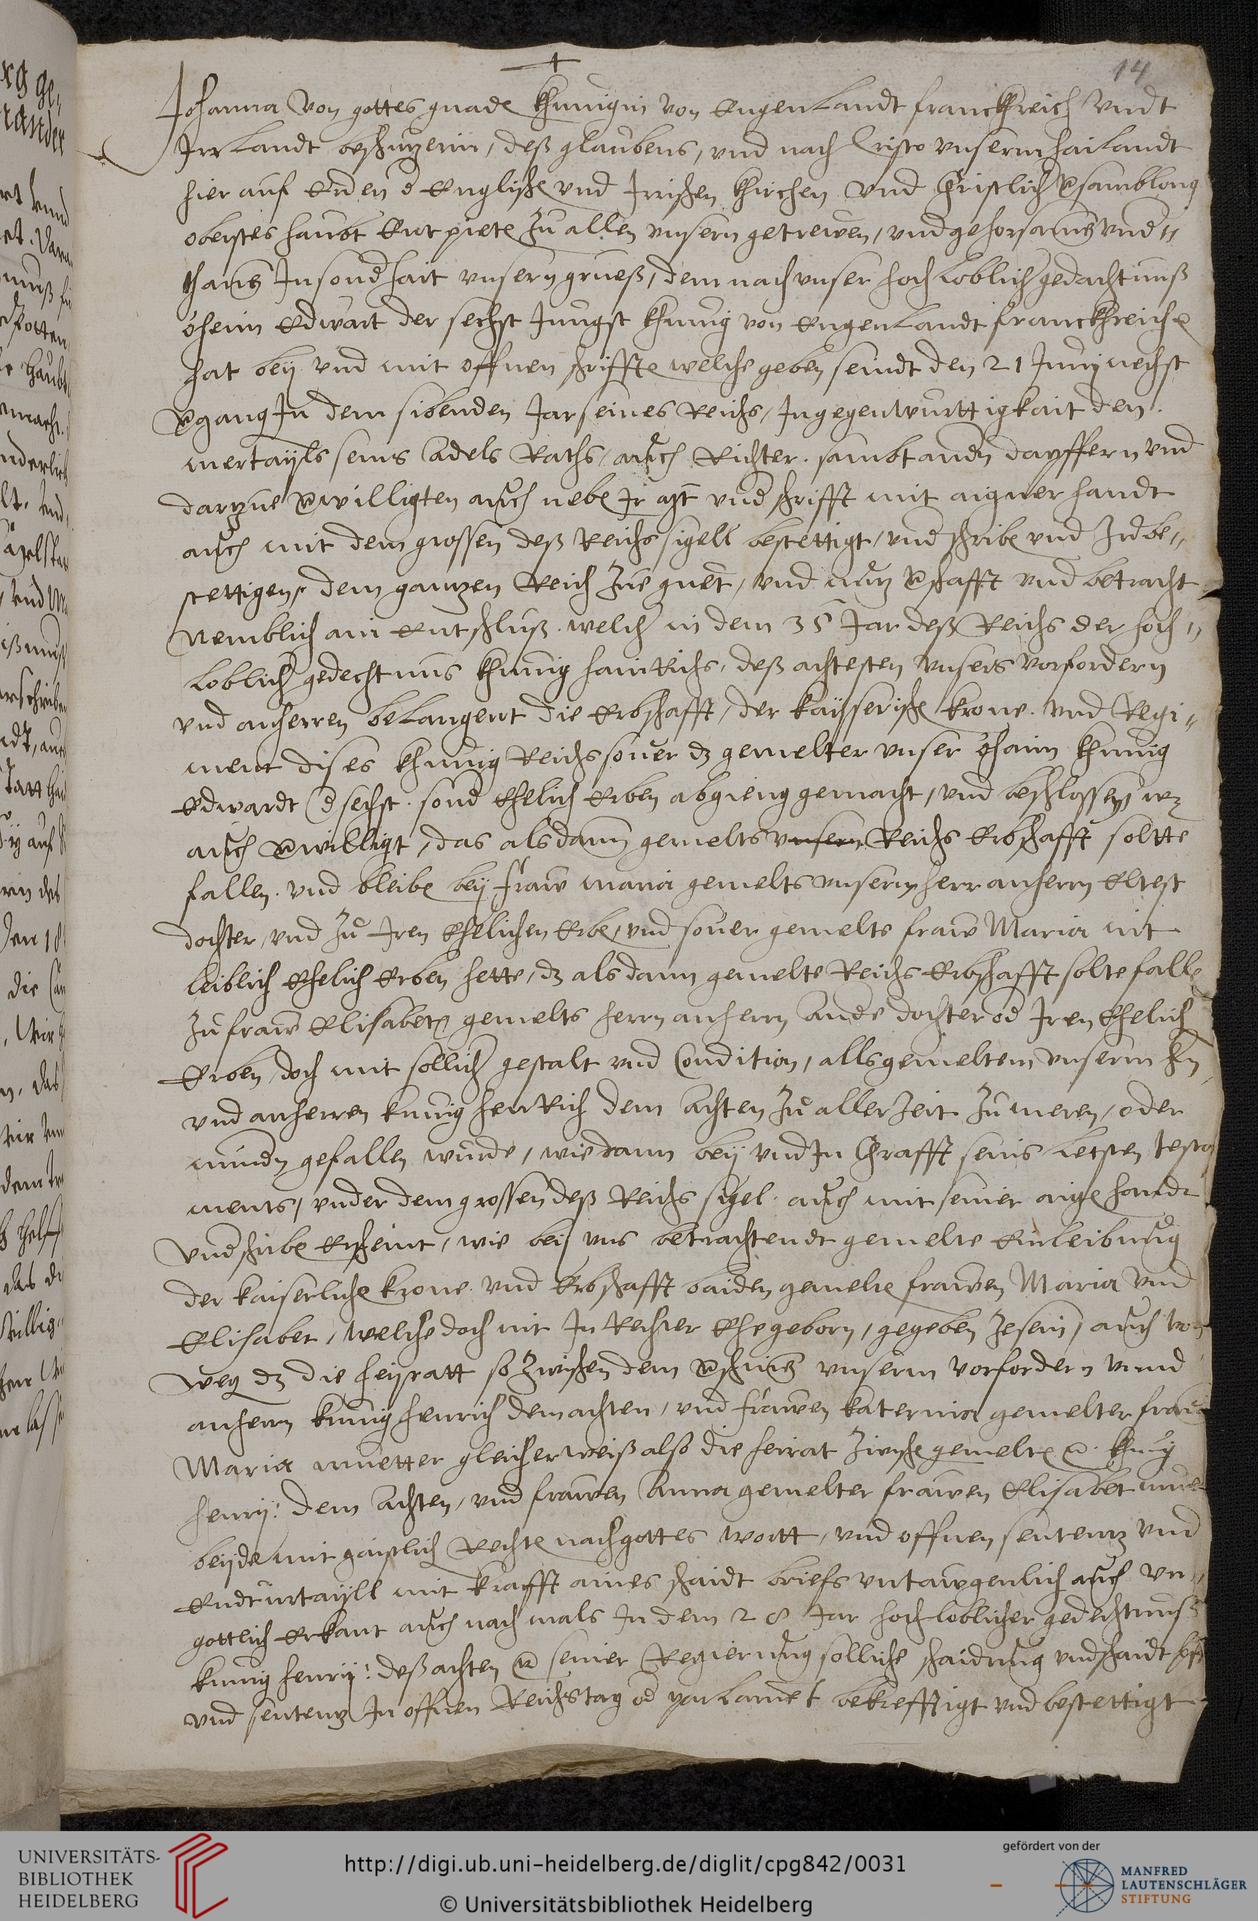 14
Johanna Von gottes gnade Khunigin von Engenlandt franckhreich Vndt
Irrlandt beshuzerin, deß glaubens, vnd nach Cristo vnserm hailandt
hier auf Erden d Englishe vnd Irishen Khirchen Vnd Christlich vsamblong
oberstes haubt Entpiete zu allen vnsern getrewen, vnd gehorsamb vnd
thanen Insondhait vnsern gruess, dem nach vnser hochloblich gedachtnuß
Oheim Edwart der sechst Jungst khunig von Engenlandt franckhreich
hat bey vnd mit offnen shrifften welche geben seindt den 21 Junij nechst
vgangen In dem sibenden Jar seines Reichs, In gegenwurttigkait den
mertayls seins Adels Raths, auch Richter sambt andn dapffern vnd
darzue vwilligten auch neben Ir vnd shrifft mit aigner handt
auch mit dem grossen deß Reichs sigell bestettigt, vnd shribe vnd be-
stettigen, dem ganzen Reich vnd nuz vshafft vnd betracht
Nemblich ain Entshluß welch in dem 35 Jar deß Reichs der hoch
loblich gedechtnus Khunig hainrichs, deß achtesten vnsers vorfordern
vnd anherren belangent die Erbshafft, der kaysserishe krone vnd Regi-
ment dises khunig Reichs souer dz gemelter vnser ohaim khunig
Edwardt d sechst sond Ehelich Erben abgieng gemacht, vnd beshlossen
auch vwilligt, das alsdann gemelts vnsern Reichs Erbshafft soltte
fallen vnd bleibe bey fraw maria gemelts vnserm herr anherrn Eltest
dochter, vnd zu Iren Ehelichen Erbe, vnd souer gemelte fraw Maria nit
leiblich Ehelich Erben hette, dz alsdann gemelte Reichs Erbshafft solte falle
zu fraw Elisabeth gemelts herrn anherrn Ande dochter od Iren Ehelich
Erben, doch mit sollich gestalt vnd Condition, alls gemeltem vnserm hn
vnd anherren kunig henrich dem Achten zu aller zeit zu meren, oder
mindn gefallen wurde, wie dann bey vnd In Chrafft seins letsten testa
ments, vnder dem grossen deß Reichs sigel auch mit seiner aige handt
vndshribe Ersheint, wie bey vns betrachtendt gemelte Einleibung
der kaiserliche krone vnd Erbshafft baiden gemelte frawen Maria vnd
Elisabet, welche doch nit In Rechter Ehe geborn, gegeben ze sein, auch
weg dz die heyratt so zwishen dem vshinen vnserm vorfordern vnnd
anherrn kunig henrich dem achten, vnd frawen katerina gemelter fraw
Maria muetter gleicherweiß also die heirat zwishe gemelte kunig
henrij: dem Achten, vnd frawen Anna gemelter frawen Elisabet mue
beyde mit gaistlich Rechte nach gottes wortt, vnd offnen sentenz vnd
Endturtayll mit krafft aines shaidt briefs vntaugenlich auch vn
gottlich Erkant auch nachmals In dem 28 Jar hochloblicher gedechtnuß
kunig henrij: deß achten seiner Regierung solliche shaidung vnd shaidt
vnd sentenz In offnen Reichstag od parlament bekrefftigt vnd bestettigt
UNIVERSITÄTS-
BIBLIOTHEK
HEIDELBERG
http://digi.ub.uni-heidelberg.de/diglit/cpg842/0031
© Universitätsbibliothek Heidelberg
gefördert von der
MANFRED
LAUTENSCHLÄGER
STIFTUNG